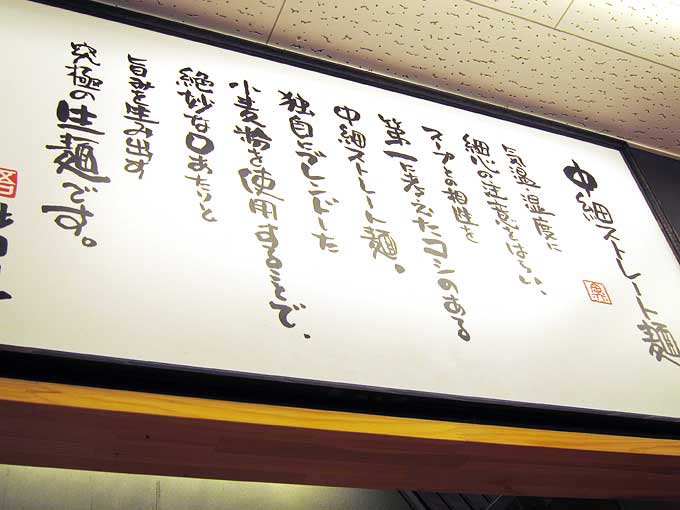 中細ストレート麺
気温・湿度に
細心の注意をはらい、
スープとの相性を
第一に考えたコシのある
中細ストレート麺。
独自にブレンドした
小麦粉を使用することで、
絶妙な口あたりと
旨みを生み出す
究極の生麺です。